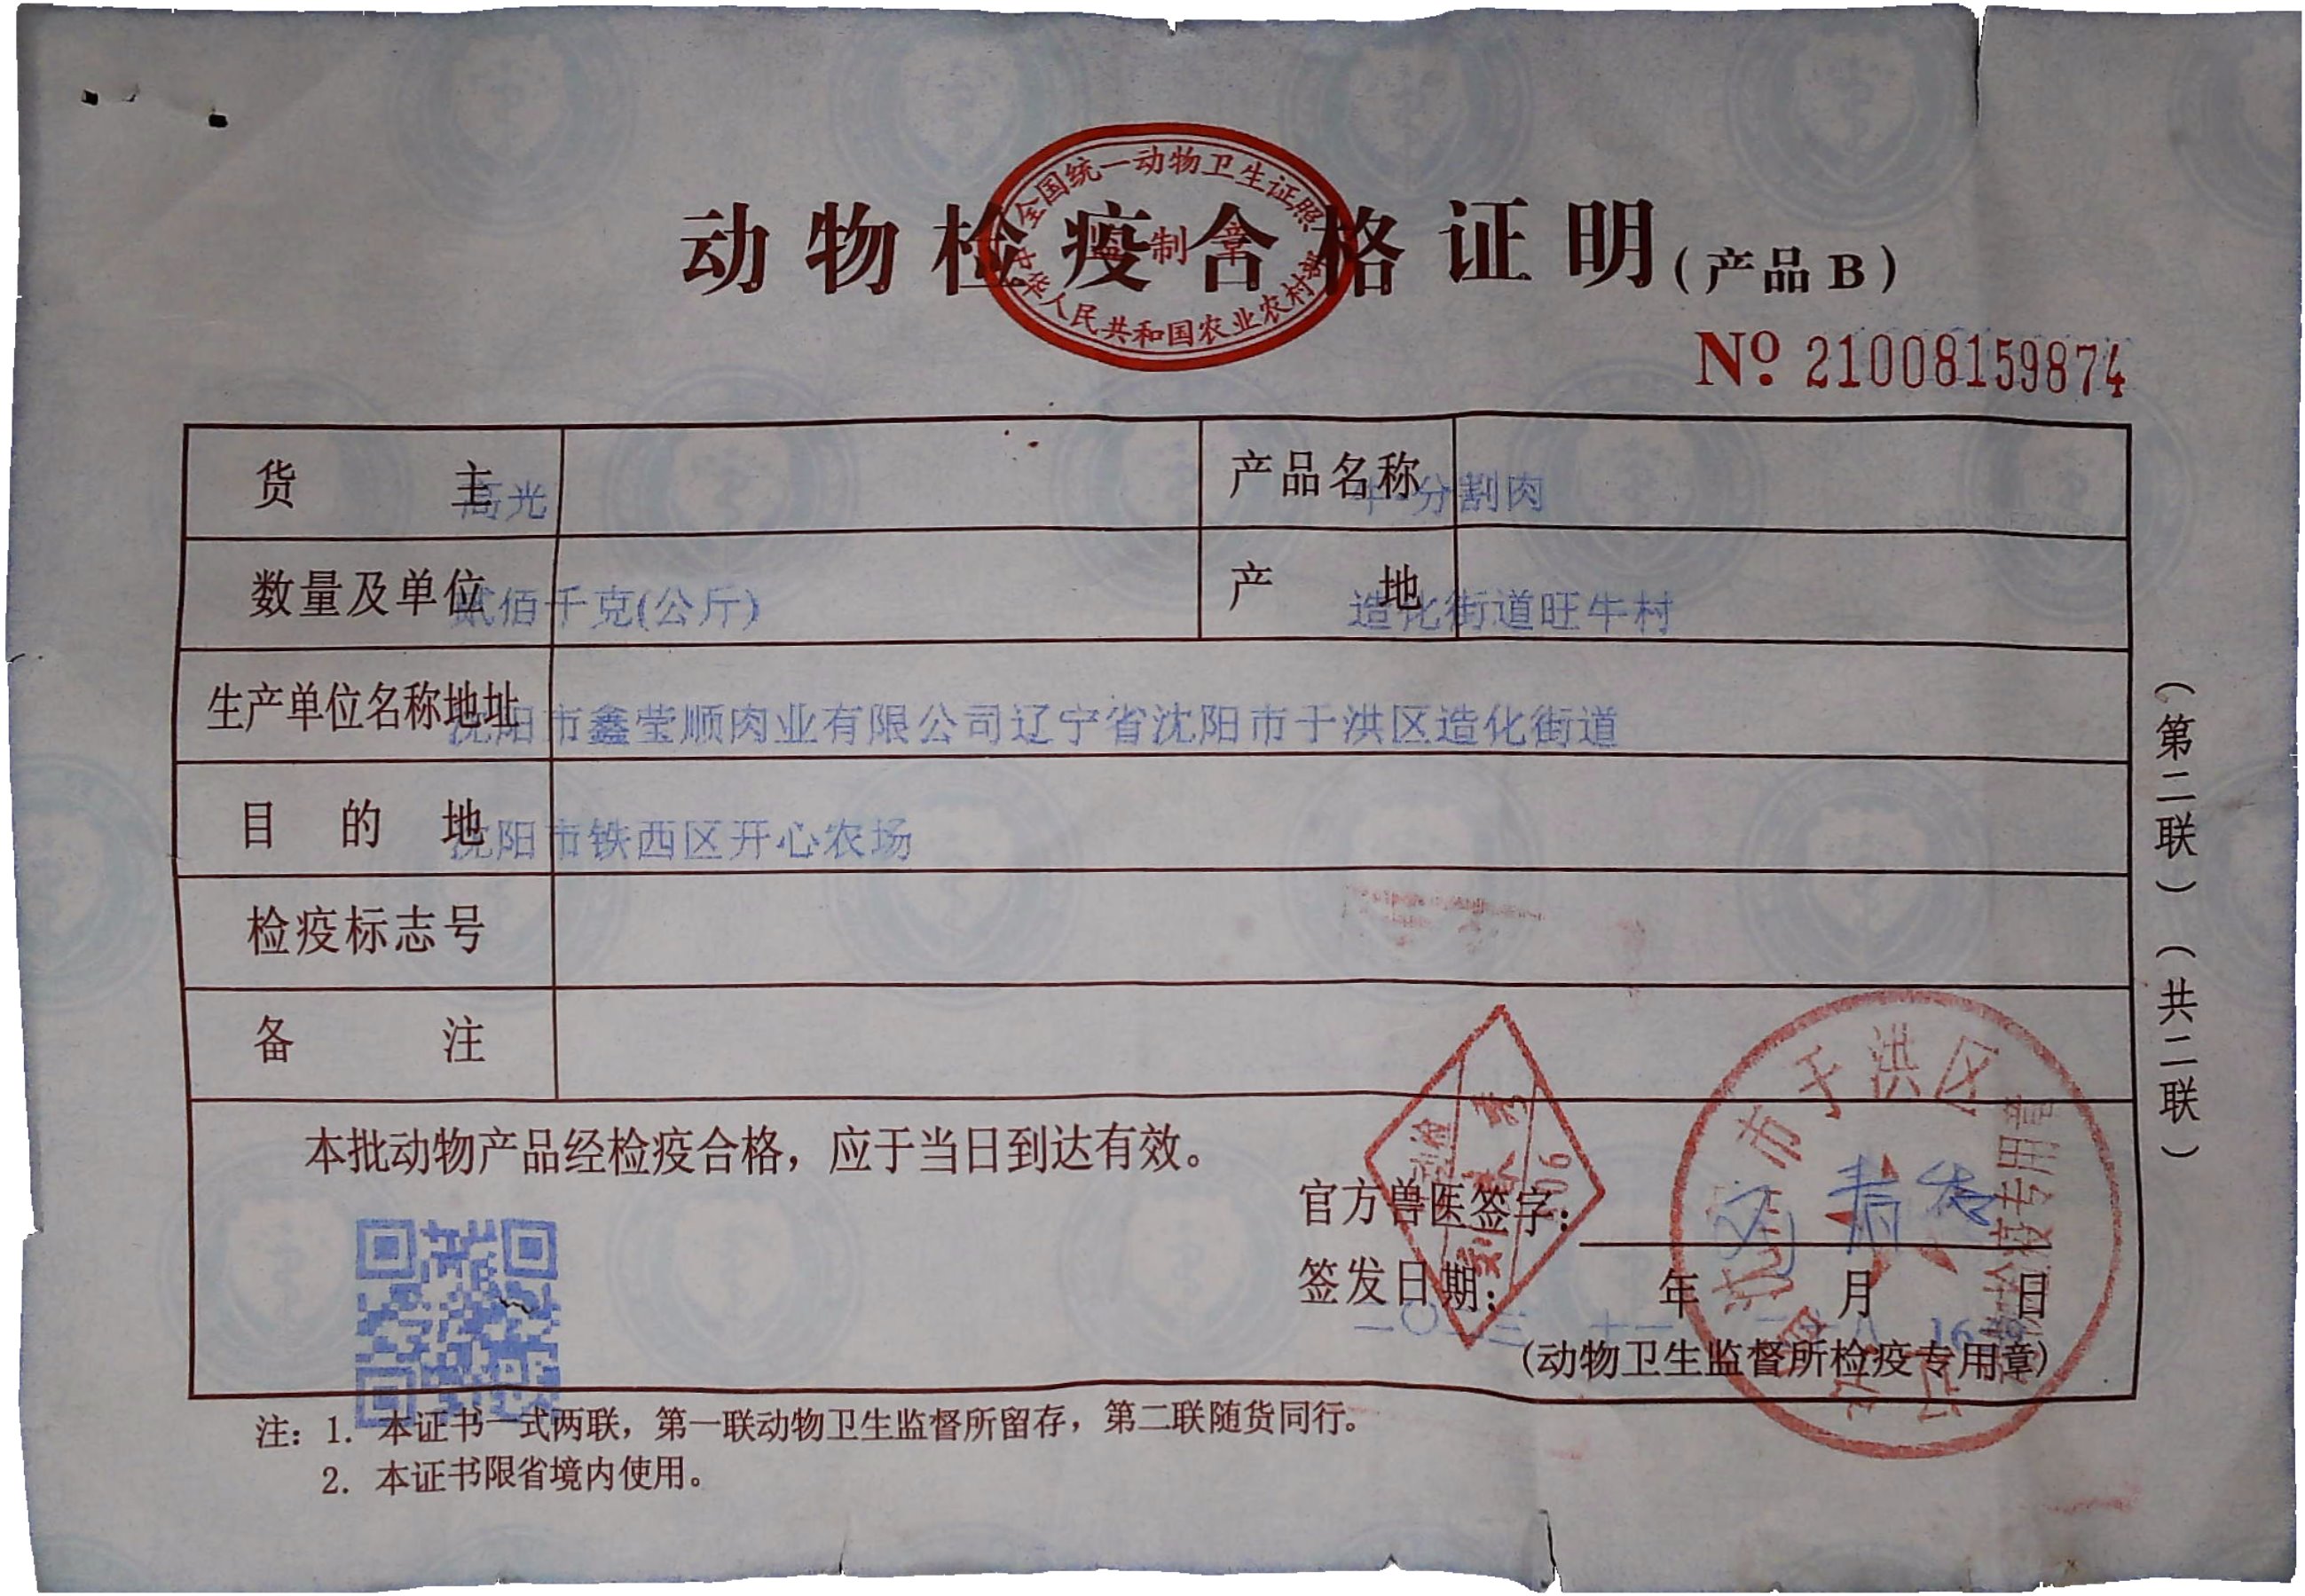 全国统一动物卫生证照
监制章
中华人民共和国农业农村部
动物检疫合格证明(产品B)
№ 21008159874
货 主 高光 产品名称 牛-分割肉
数量及单位 贰佰千克(公斤) 产 地 造化街道旺牛村
生产单位名称地址 沈阳市鑫莹顺肉业有限公司辽宁省沈阳市于洪区造化街道
目的地 沈阳市铁西区开心农场
检疫标志号
备 注
本批动物产品经检疫合格，应于当日到达有效。
官方兽医签字：
签发日期： 二〇二三 年 十一 月 二十八 日 16
(动物卫生监督所检疫专用章)
市于洪区
检疫专用章
注：1. 本证书一式两联，第一联动物卫生监督所留存，第二联随货同行。
2. 本证书限省境内使用。
（第二联）（共二联）